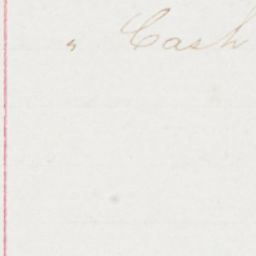 " Cash